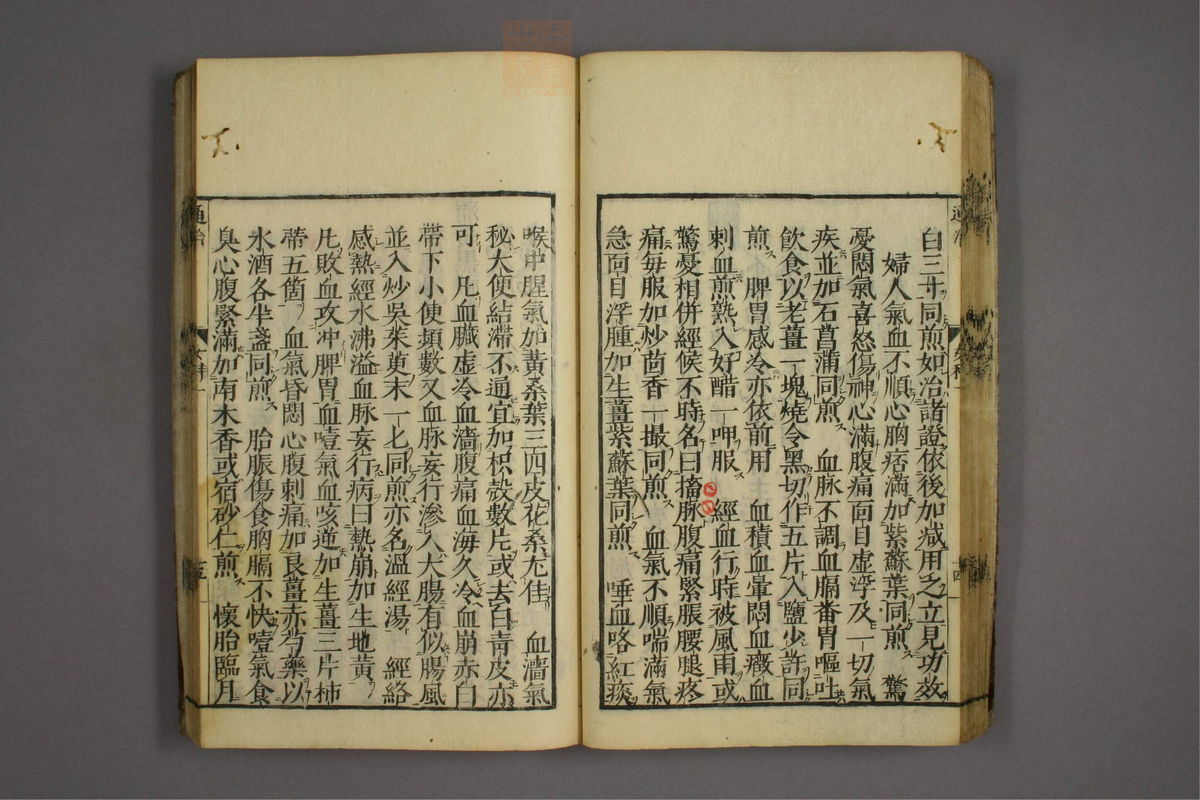 白三寸同煎如治諸證依後加减用之立見功效
婦人氣血不順心胸痞滿加紫蘇葉同煎 驚
憂悶氣喜怒傷神心滿腹痛面目虚浮及一切氣
疾並加石菖蒲同煎 血脉不調血膈番胃嘔吐
飲食以老薑一塊燒令黑切作五片入鹽少許同
煎 脾胃感冷亦依前用 血積血暈悶血癥血
刺血煎熟入好醋一呷服 經血行時被風雨或
驚憂相併經候不時名曰搐脉腹痛緊脹腰腿疼
痛每服加炒茴香一撮同煎 血氣不順喘滿氣
急面目浮腫加生薑紫蘇葉同煎 唾血咯紅痰
喉中腥氣加黃桑葉三四皮花桑尤佳 血濇氣
秘大便結滯不通宜加枳殻數片或去白青皮亦
可 凡血臓虚冷血濇腹痛血海久冷血崩赤白
帶下小便頻數又血脉妄行滲入大腸有似腸風
並入炒吳茱萸末一匕同煎亦名溫經湯 經絡
感熱經水沸溢血脉妄行病曰熱崩加生地黄
凡敗血攻冲脾胃血噎氣血咳逆加生薑三片柿
蔕五箇 血氣昏悶心腹刺痛加良薑赤芍藥以
水酒各半盞同煎 胎脹傷食胸膈不快噎氣食
臭心腹緊滿加南木香或宿砂仁煎 懷胎臨月
通治
五